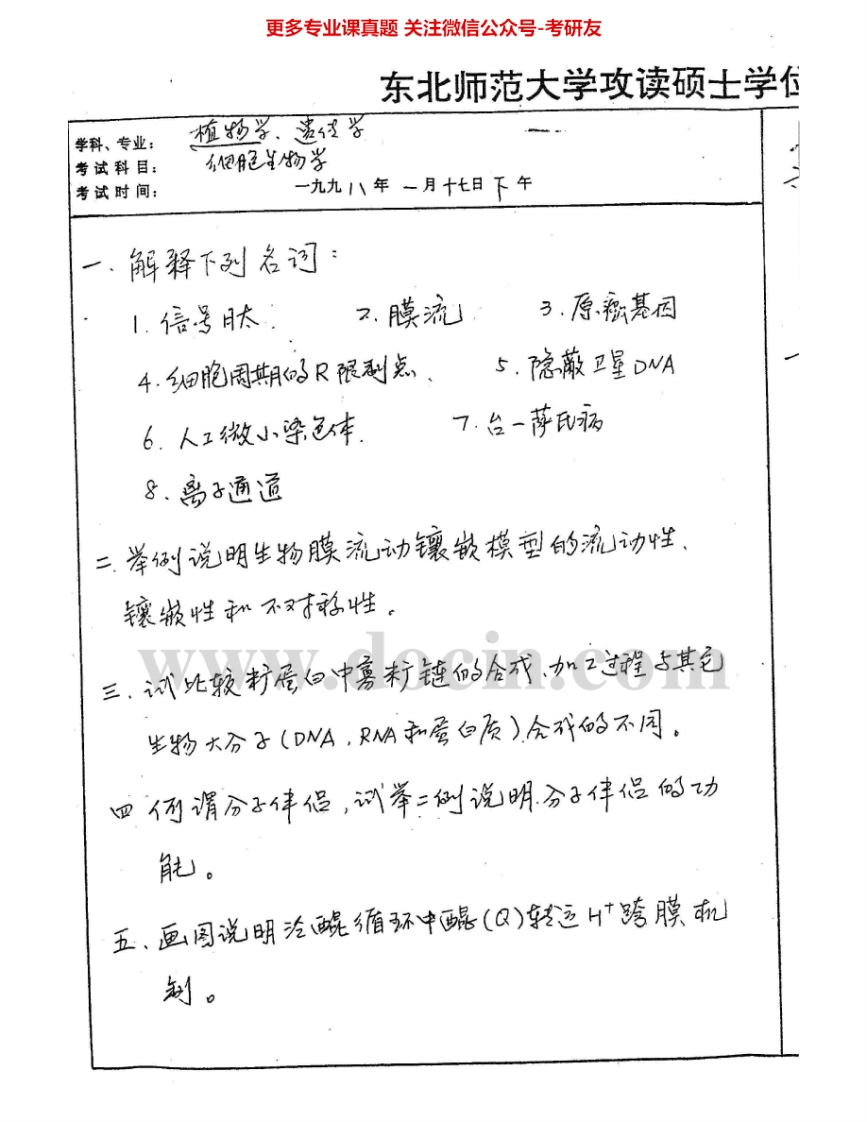 更多专业课真题 关注微信公众号-考研友
东北师范大学攻读硕士学位
学科、专业： 植物学、遗传学
考试科目： 细胞生物学
考试时间： 一九九八年 一月十七日下午
一. 解释下列名词：
1. 信号肽. 2. 膜流 3. 原癌基因
4. 细胞周期的R限制点、 5. 隐蔽卫星DNA
6. 人工微小染色体. 7. 台-萨氏病
8. 离子通道
二. 举例说明生物膜流动镶嵌模型的流动性、
镶嵌性和不对称性。
www.docin.com
三. 试比较糖蛋白中寡糖链的合成、加工过程与其它
生物大分子（DNA，RNA和蛋白质）合成的不同。
四 何谓分子伴侣，试举二例说明分子伴侣的功
能。
五、画图说明泛醌循环中醌(Q)转运H⁺跨膜机
制。